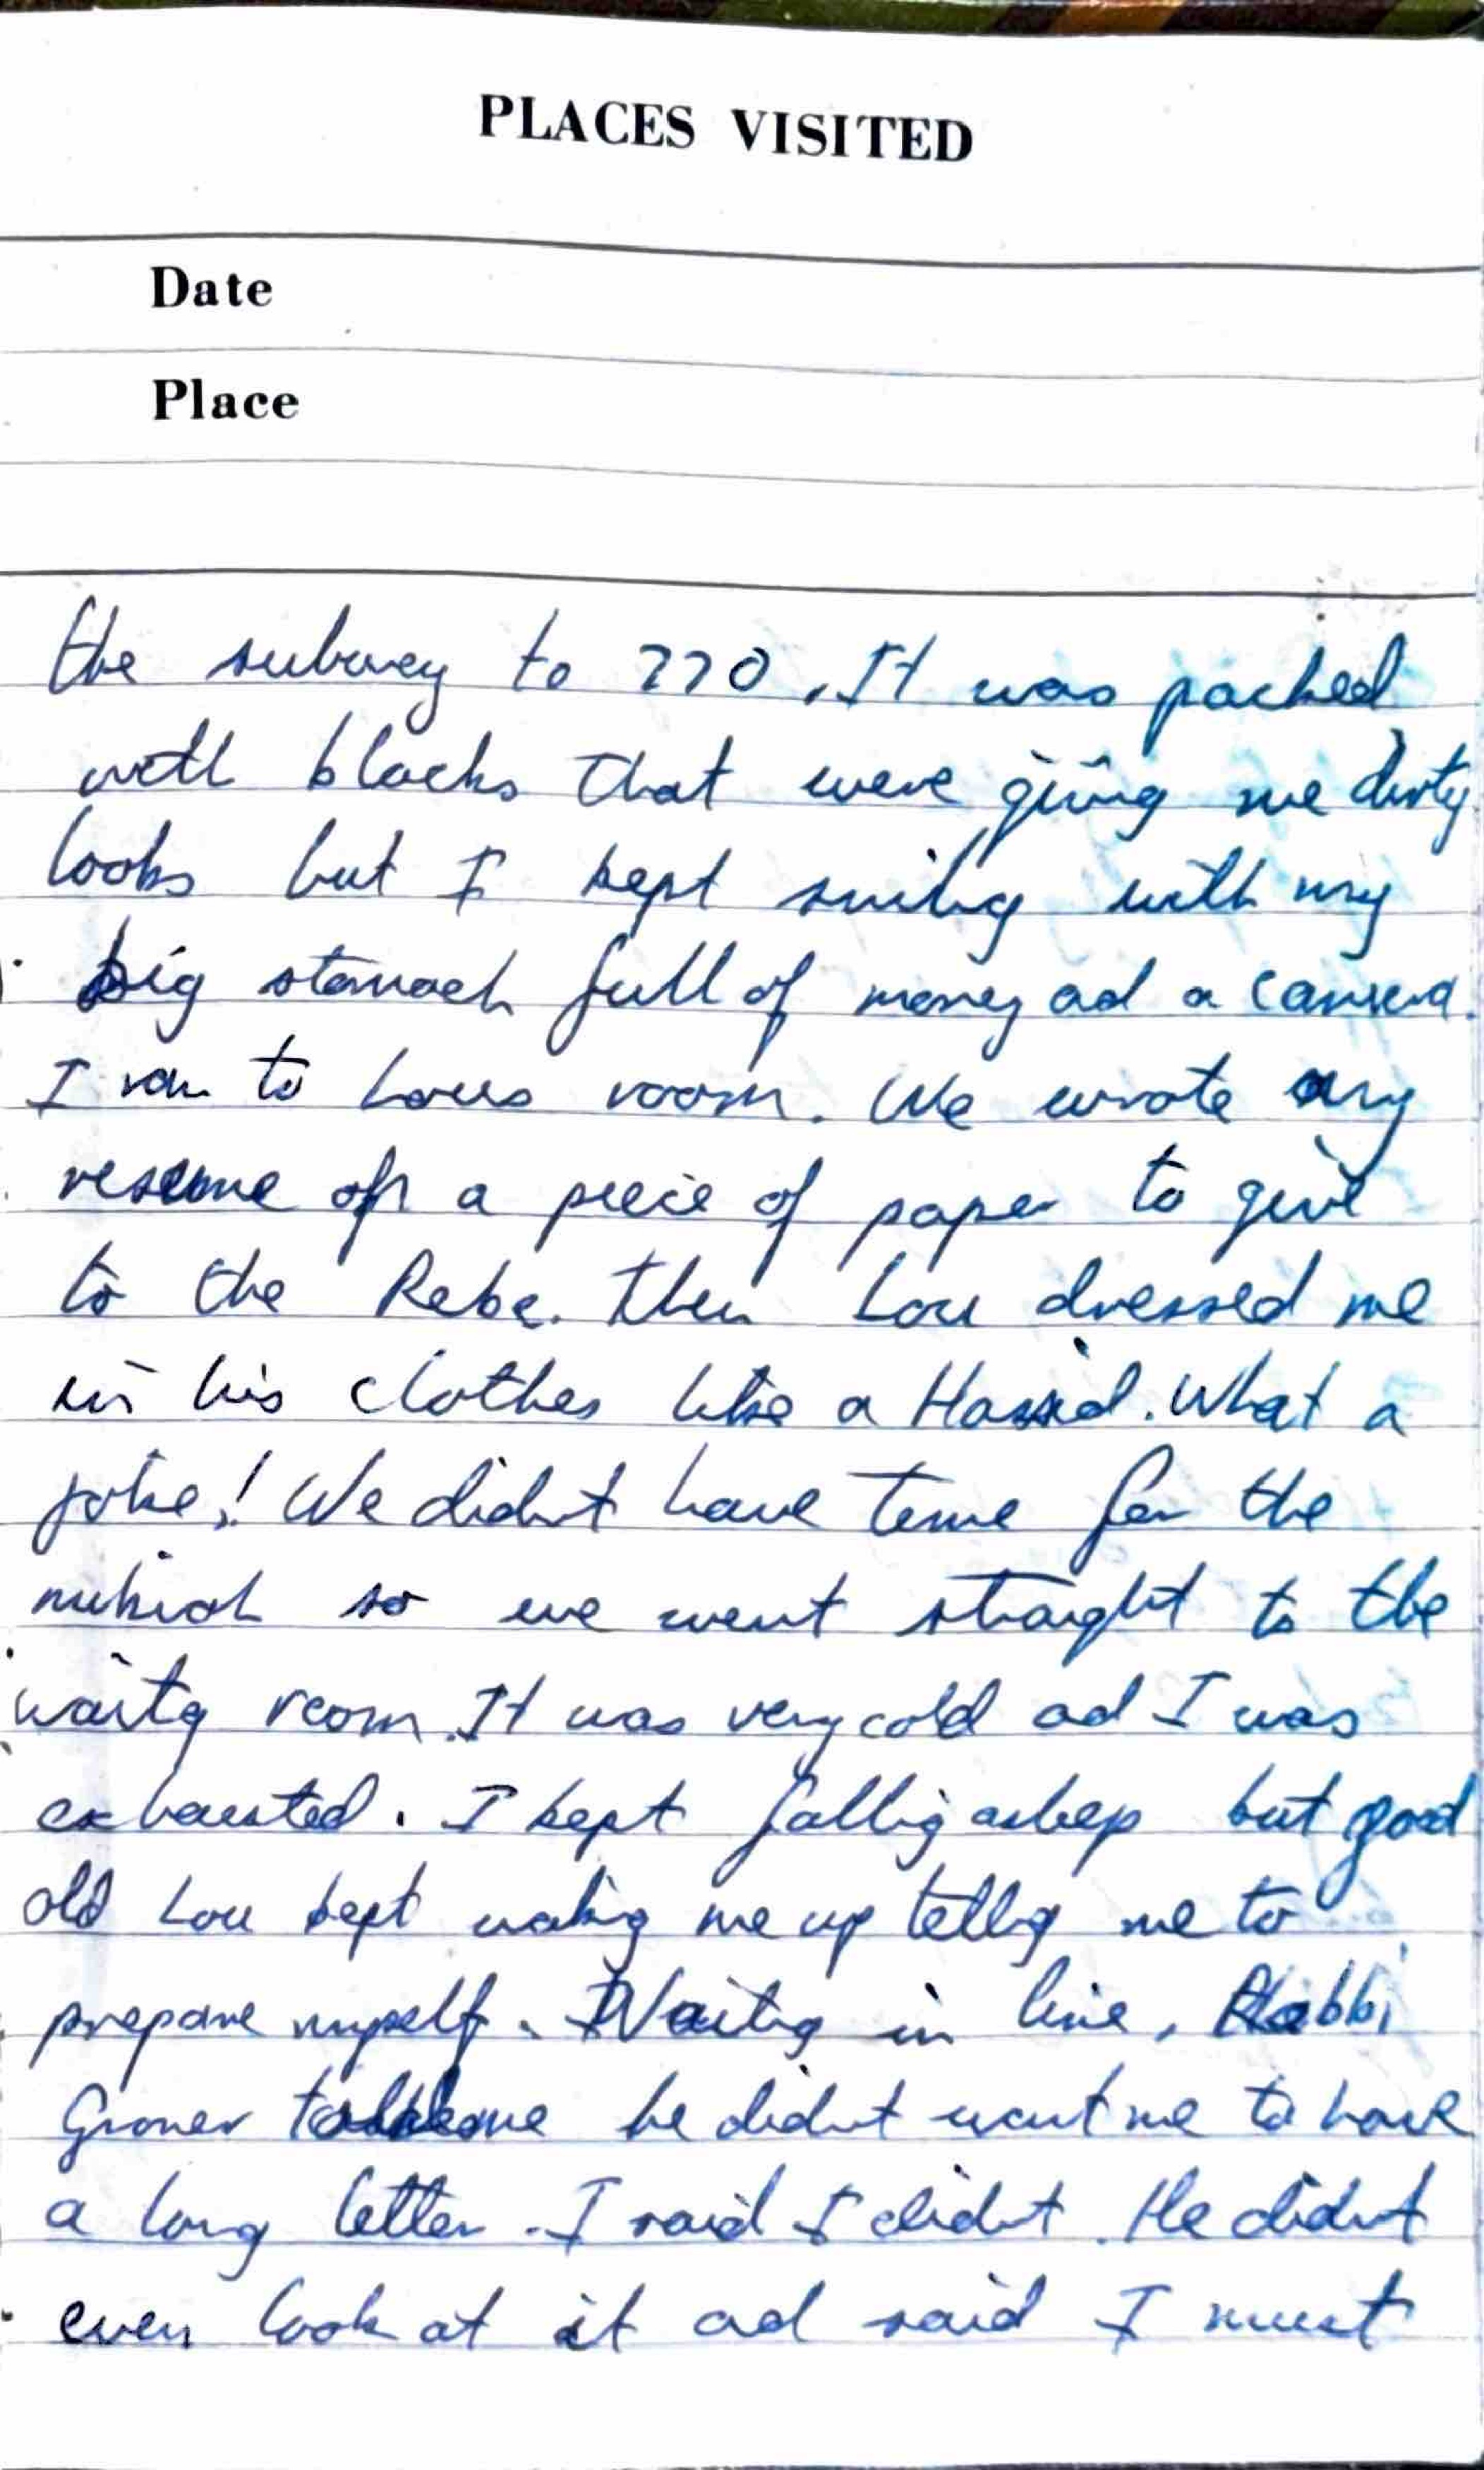 PLACES VISITED
Date
Place
the subway to 770. It was packed
with blacks that were giving me dirty
looks but I kept smilig with my
big stomach full of money ad a camera.
I ran to Lous room. We wrote my
resume on a piece of paper to give
to the Rebe. Then Lou dressed me
in his clothes like a Hassid. What a
joke! We didnt have time for the
mikvah so we went straight to the
waitg room. It was very cold ad I was
exhausted. I kept fallig asleep but good
old Lou kept wakig me up tellig me to
prepare myself. Waitig in line, Rabbi
Groner me he didnt want me to have
a long letter. I said I didnt. He didnt
even look at it ad said I must